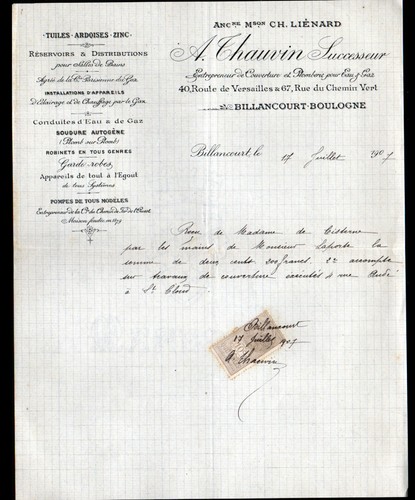 TUILES-ARDOISES-ZINC
Réservoirs & Distributions
pour Salles de Bains
Agréé de la Cie Parisienne du Gaz
INSTALLATIONS D'APPAREILS
d'Eclairage et de Chauffage par le Gaz
Conduites d'Eau & de Gaz
SOUDURE AUTOGÈNE
(Plomb sur Plomb)
ROBINETS EN TOUS GENRES
Garde-robes,
Appareils de tout à l'Egout
de tous Systèmes
POMPES DE TOUS MODÈLES
Entrepreneur de la Cie du Chemin de Fer de l'Ouest
Maison fondée en
ANCNE MSON CH. LIÉNARD
A. Chauvin Successeur
Entrepreneur de Couverture et Plomberie pour Eau & Gaz
40, Route de Versailles & 67, Rue du Chemin Vert
BILLANCOURT-BOULOGNE
Billancourt, le 17 Juillet 1907
Reçu de Madame de Cisterne
par les mains de Monsieur Laporte la
somme de deux cents 200 francs. 2e accompte
sur travaux de couverture exécutés 4 rue
à St Cloud.
Billancourt
17 Juillet 1907
A. Chauvin